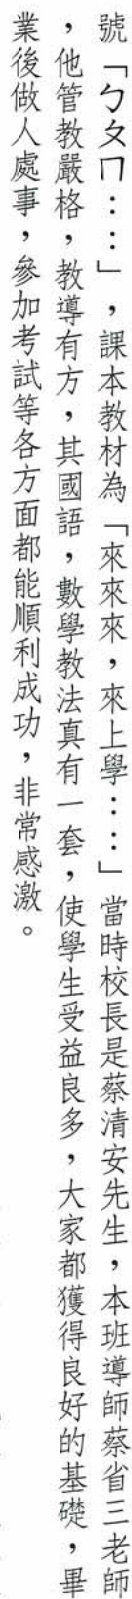 號「ㄅㄆㄇ……」，課本教材為「來來來，來上學……」當時校長是蔡清安先生，本班導師蔡省三老師
，他管教嚴格，教導有方，其國語，數學教法真有一套，使學生受益良多，大家都獲得良好的基礎，畢
業後做人處事，參加考試等各方面都能順利成功，非常感激。